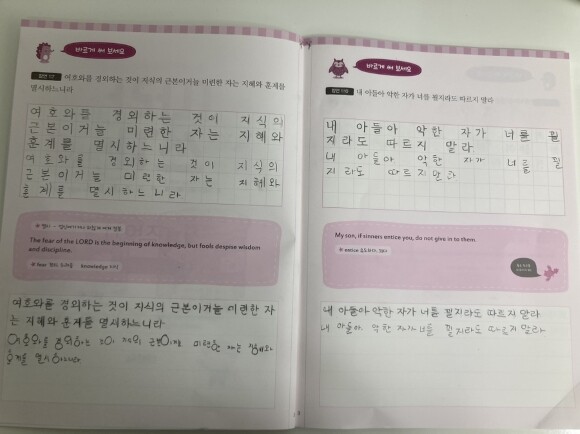 바르게 써 보세요
잠언 1:7 여호와를 경외하는 것이 지식의 근본이거늘 미련한 자는 지혜와 훈계를
멸시하느니라
여호와를 경외하는 것이 지식의
근본이거늘 미련한 자는 지혜와
훈계를 멸시하느니라
여호와를 경외하는 것이 지식의
근본이거늘 미련한 자는 지혜와
훈계를 멸시하느니라
The fear of the LORD is the beginning of knowledge, but fools despise wisdom
and discipline.
knowledge 지식
여호와를 경외하는 것이 지식의 근본이거늘 미련한 자
는 지혜와 훈계를 멸시하느니라
바르게 써 보세요
잠언 1:10 내 아들아 악한 자가 너를 꾈지라도 따르지 말라
내 아들아 악한 자가 너를 꾈
지라도 따르지 말라
내 아들아 악한 자가 너를 꾈
지라도 따르지 말라
My son, if sinners entice you, do not give in to them.
entice
내 아들아 악한 자가 너를 꾈지라도 따르지 말라
내 아들아 악한 자가 너를 꾈지라도 따르지 말라